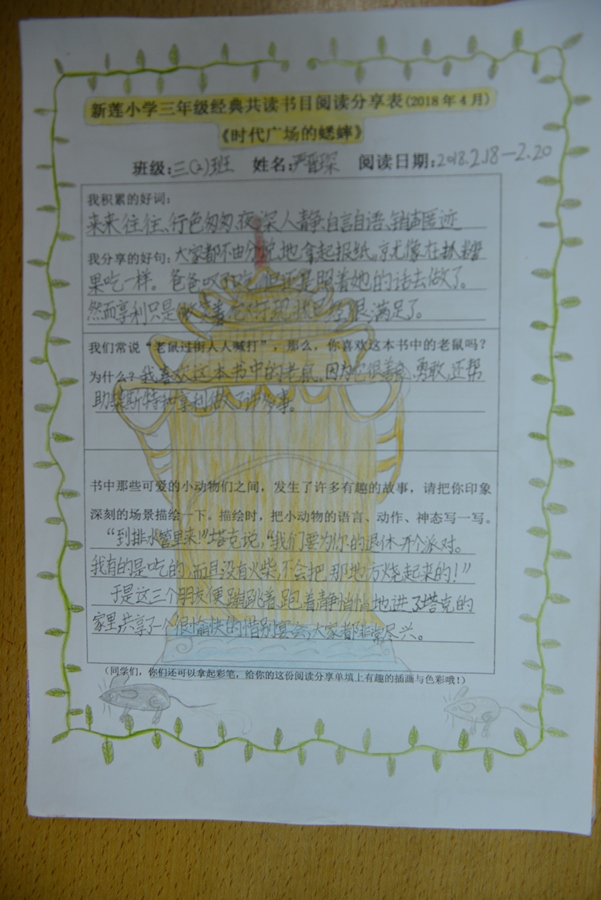 新莲小学三年级经典共读书目阅读分享表(2018年4月)
《时代广场的蟋蟀》
班级:三(2)班 姓名:严 琛 阅读日期:2018.2.18—2.20
我积累的好词:
来来往往、行色匆匆、夜深人静、自言自语、销声匿迹
我分享的好句:大家都不由分说地拿起报纸。京尤像在抓糖
果吃一样。爸爸 但还是照着她的话去做了。
然而亨利只是 满足了。
我们常说“老鼠过街人人喊打”,那么,你喜欢这本书中的老鼠吗?
为什么?我喜欢这本书中的老鼠,因为它很善良、勇敢,还帮
助柴斯特和亨利做了许多事。
书中那些可爱的小动物们之间,发生了许多有趣的故事,请把你印象
深刻的场景描绘一下。描绘时,把小动物的语言、动作、神态写一写。
“到排水管里来!”塔克说,“我们要为你的退休开个派对。
我有的是吃的,而且没有火柴,不会把那地方烧起来的!”
于是这三个朋友便蹦跳着,跑着静悄悄地进了塔克的
家里,共享了一个很愉快的惜别宴会,大家都非常尽兴。
(同学们,你们还可以拿起彩笔,给你的这份阅读分享单填上有趣的插画与色彩哦!)